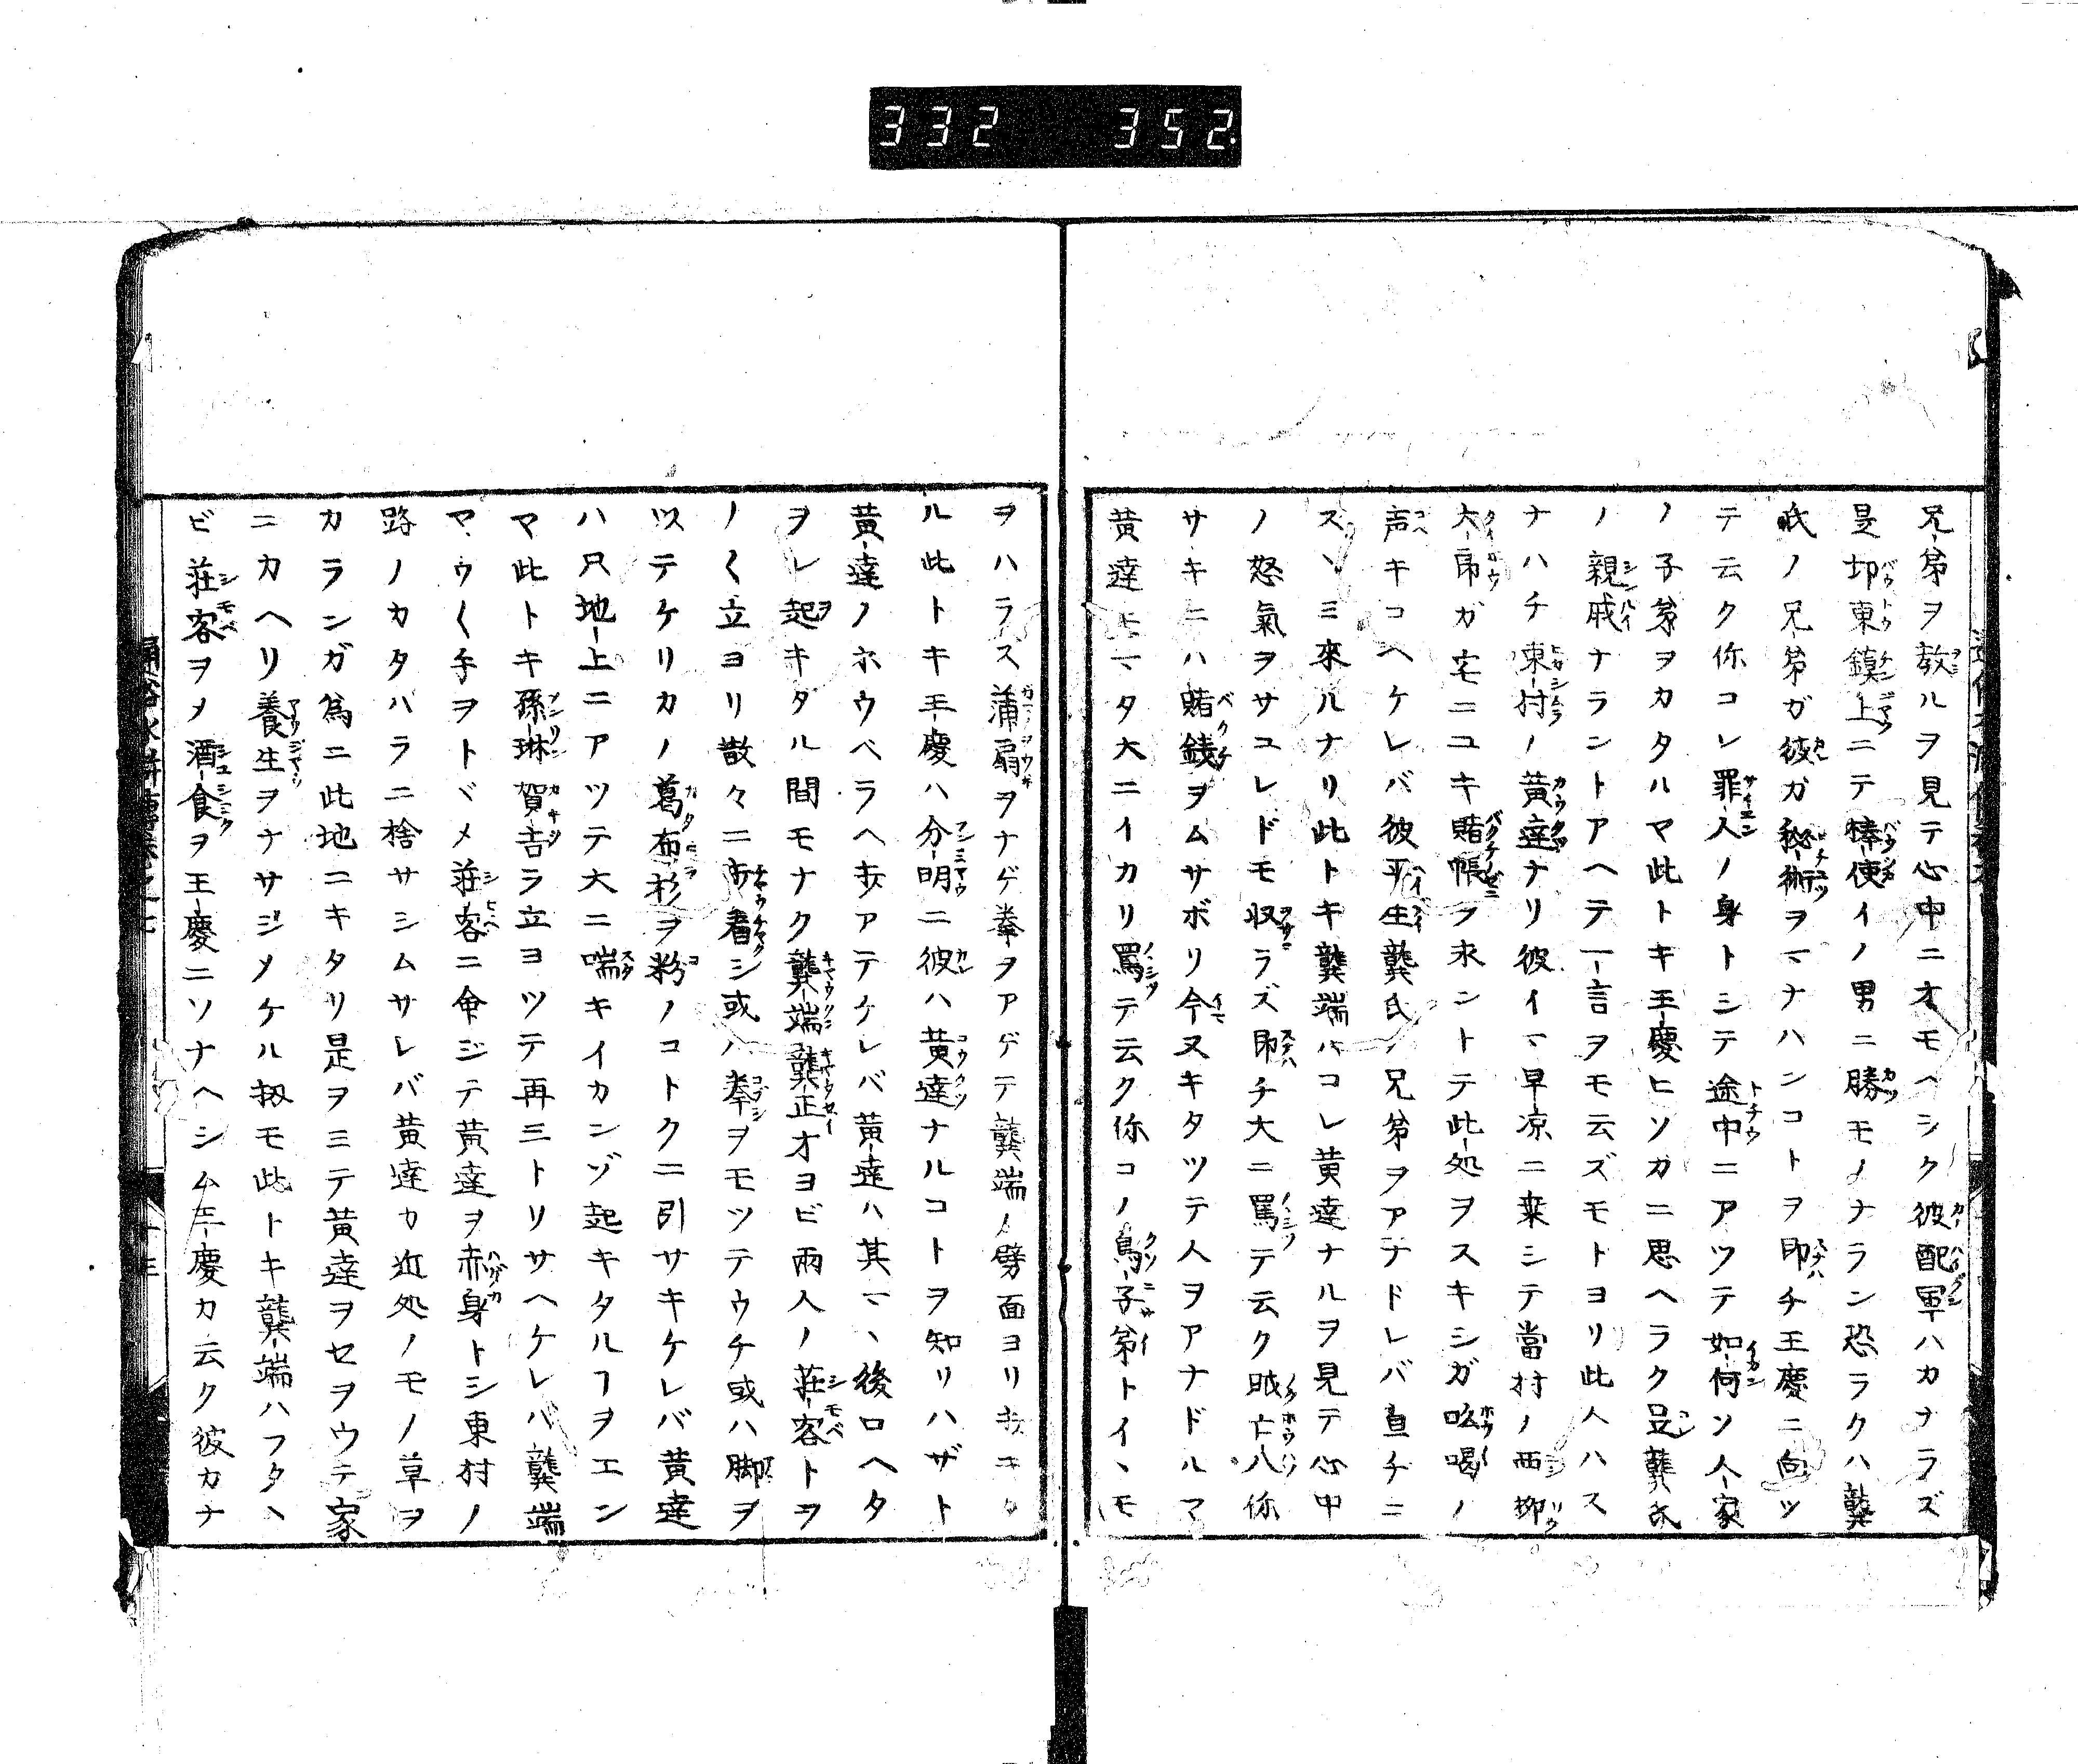 332 352.
兄弟ヲ教ルヲ見テ心中ニオモヘシク彼配軍ハカナラズ
是邙東鎮上ニテ棒使イノ男ニ勝モノナラン恐ラクハ龔
氏ノ兄弟ガ彼ガ秘術ヲマナハンコトヲ即チ王慶ニ向ツ
テ云ク你コレ罪人ノ身トシテ途中ニアツテ如何ン人家
ノ子弟ヲカタルマ此トキ王慶ヒソカニ思ヘラク是龔氏
ノ親戚ナラントアヘテ一言ヲモ云ズモトヨリ此人ハス
ナハチ東村ノ黄達ナリ彼イマ早凉ニ乗シテ當村ノ西柳
大郎ガ宅ニユキ賭帳ヲ求ントテ此処ヲスキシガ吆喝ノ
声キコヘケレバ彼平生龔氏ノ兄弟ヲアナドレバ直チニ
スヽミ來ルナリ此トキ龔端ハコレ黄達ナルヲ見テ心中
ノ怒氣ヲサユレドモ収ラズ即チ大ニ罵テ云ク賊亡八你
サキニハ賭銭ヲムサボリ今又キタツテ人ヲアナドルマ
黄達モマタ大ニイカリ罵テ云ク你コノ鳥子弟トイヽモ
ヲハラス蒲扇ヲナゲ拳ヲアゲテ龔端ノ劈面ヨリ
ル此トキ王慶ハ分明ニ彼ハ黄達ナルコトヲ知リハザト
黄達ノホウヘラヘアテケレバ黄達ハ其マヽ後ロヘタ
ヲレ起キダル間モナク龔端龔正オヨビ両人ノ荘客トヲ
ノ〱立ヨリ散々ニ打着シ或ハ拳ヲモツテウチ或ハ脚ヲ
以ステケリカノ葛布衫ヲ粉ノコトクニ引サキケレバ黄達
ハ只地上ニアツテ大ニ喘キイカンゾ起キタルヿヲエン
マ此トキ孫琳賀吉ラ立ヨツテ再三トリサヘケレバ龔端
マヽウ〱手ヲトヾメ荘客ニ命ジテ黄達ヲ赤身トシ東村ノ
路ノカタハラニ捨サシムサレバ黄達カ近処ノモノ草ヲ
カランガ為ニ此地ニキタリ是ヲミテ黄達ヲセヲウテ家
ニカヘリ養生ヲナサジメケル扨モ此トキ龔端ハフタヽ
ビ荘客ヲメ酒食ヲ王慶ニソナヘシム王慶カ云ク彼カナ